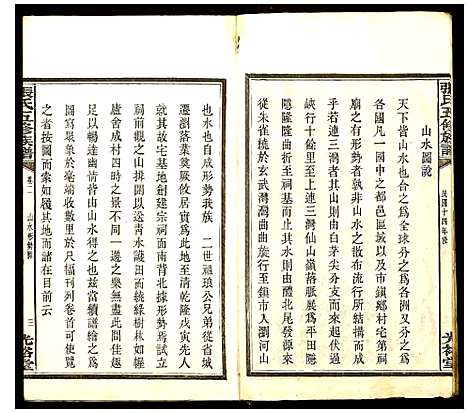 張氏五修族譜
民國十四年修
光裕堂
山水圖說
天下皆山水也爲全球分之爲
各國之山水以一中之都邑區域以及市鎮鄉村宅第祠
廟之有形勢者孰非山水之散布流行所
乎若連三灣者其山則由白茅尖分支而來起伏過
峽行十餘里至連三灣仙山嶺落脈展爲平田隱
隱隆隆曲折至祠基而止其水則由醴北尾發源
從朱雀繞於玄武灣灣曲曲旋行至鎮市人瀏河山
也水也自成形勢我族 二世祖琅公兄弟從省城
遷瀏落葉奠厥攸居實爲此地至清乾隆戊寅先人
就其故宅基地創建宗祠而南拱北據形勢焉試於
祠前觀之山排闥以送青水護田而繞綠樹林如幄
廬舍成村四時之景不同一邊之樂無盡此間佳趣
足以暢達幽情皆由山水得之也茲當續譜繪之成
圖莫羣巒於毫端收數里於尺幅刊列卷首俾閱
之者按圖而索如履其地而諸在目前云
張氏五修族譜
卷二 山水形勢圖
三
光裕堂